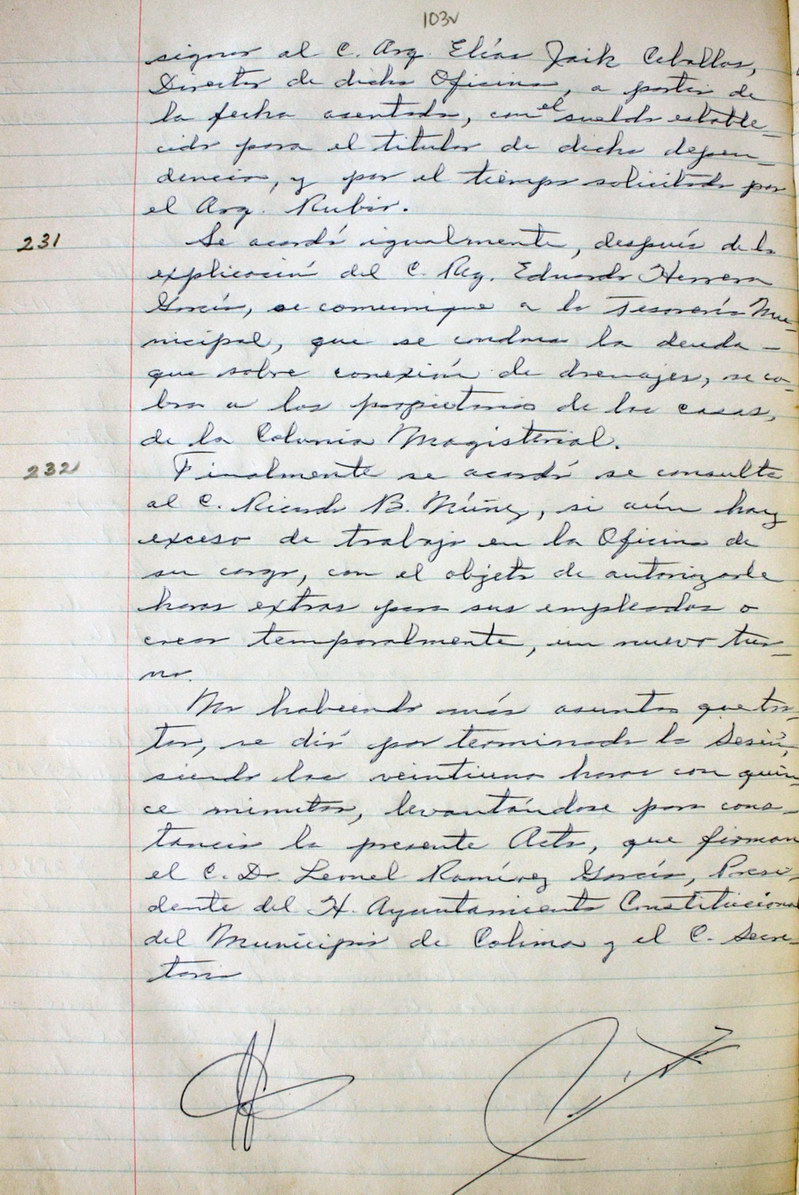 103v
signar al C. Arq. Elías Jaik Ceballos,
Director de dicha Oficina, a partir de
la fecha asentada, con el sueldo estable-
cido para el titular de dicha depen-
dencia, y por el tiempo solicitado por
el Arq. Rubio.
231 Se acordó igualmente, después de la
explicación del C. Reg. Eduardo Herrera
García, se comunique a la Tesorería Mu-
nicipal, que se condona la deuda -
que sobre conexión de drenajes, se co-
bra a los propietarios de las casas,
de la Colonia Magisterial.
232 Finalmente se acordó se consulte
al C. Ricardo B. Núñez, si aún hay
exceso de trabajo en la Oficina de
su cargo, con el objeto de autorizarle
horas extras para sus empleados o
crear temporalmente, un nuevo tur-
no.
No habiendo más asuntos que tra-
tar, se dió por terminada la Sesión,
siendo las veintiuna horas con quin-
ce minutos, levantándose para cons-
tancia la presente Acta, que firman
el C. Dr. Leonel Ramírez García, Presi-
dente del H. Ayuntamiento Constitucional
del Municipio de Colima y el C. Secre-
tario